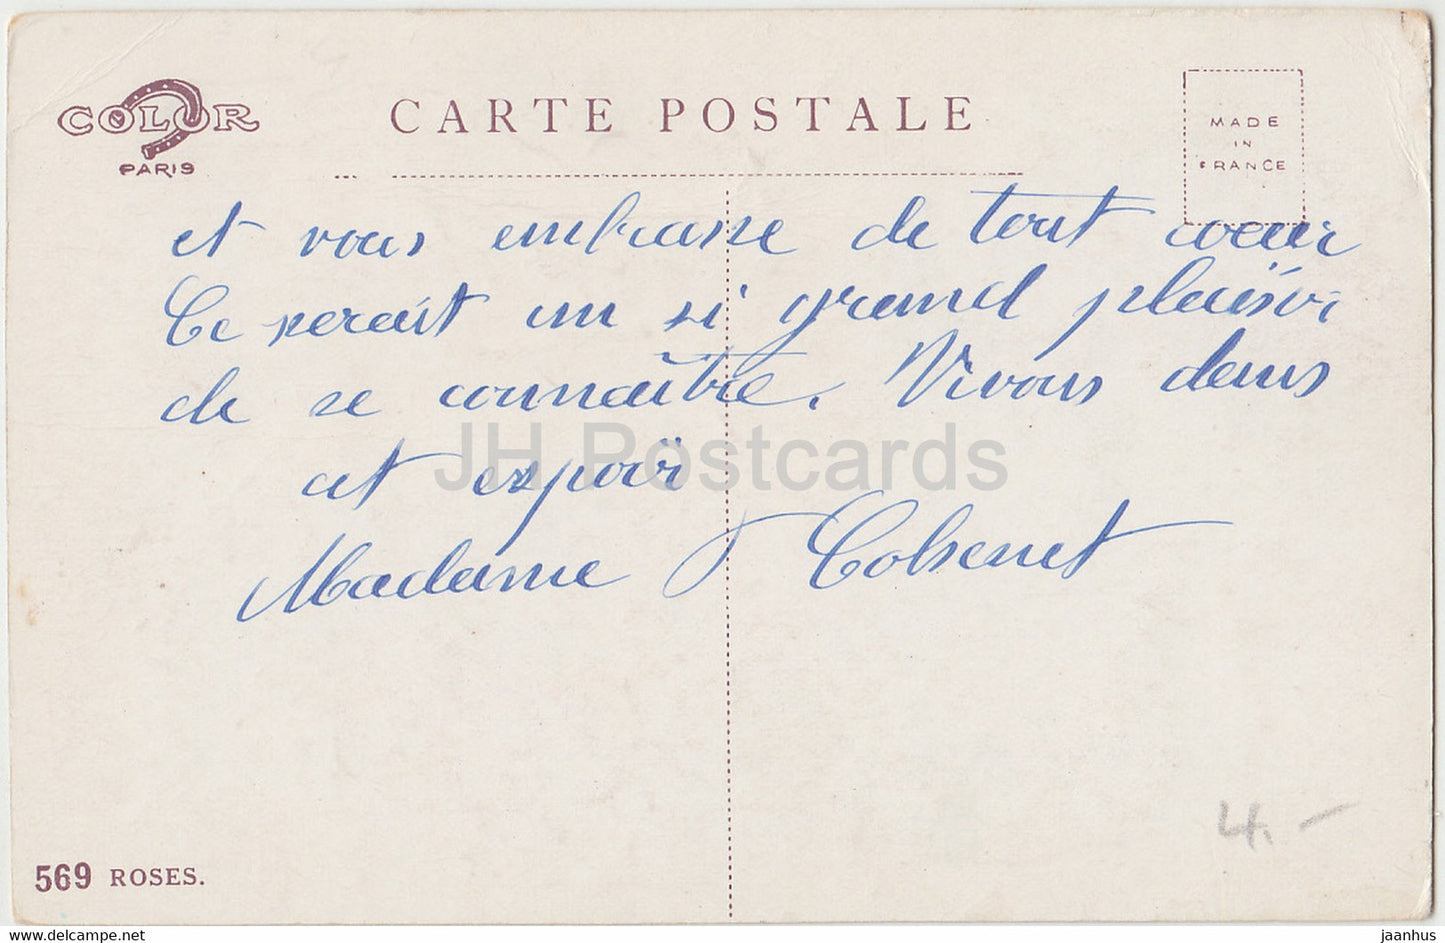 COLOR
PARIS
CARTE POSTALE
MADE
IN
FRANCE
et vous embrasse de tout cœur
Ce serait un si grand plaisir
de se connaître. Vivons dans
cet espoir
JH Postcards
Madame
4.-
569 ROSES.
delcampe.net
jaanhus